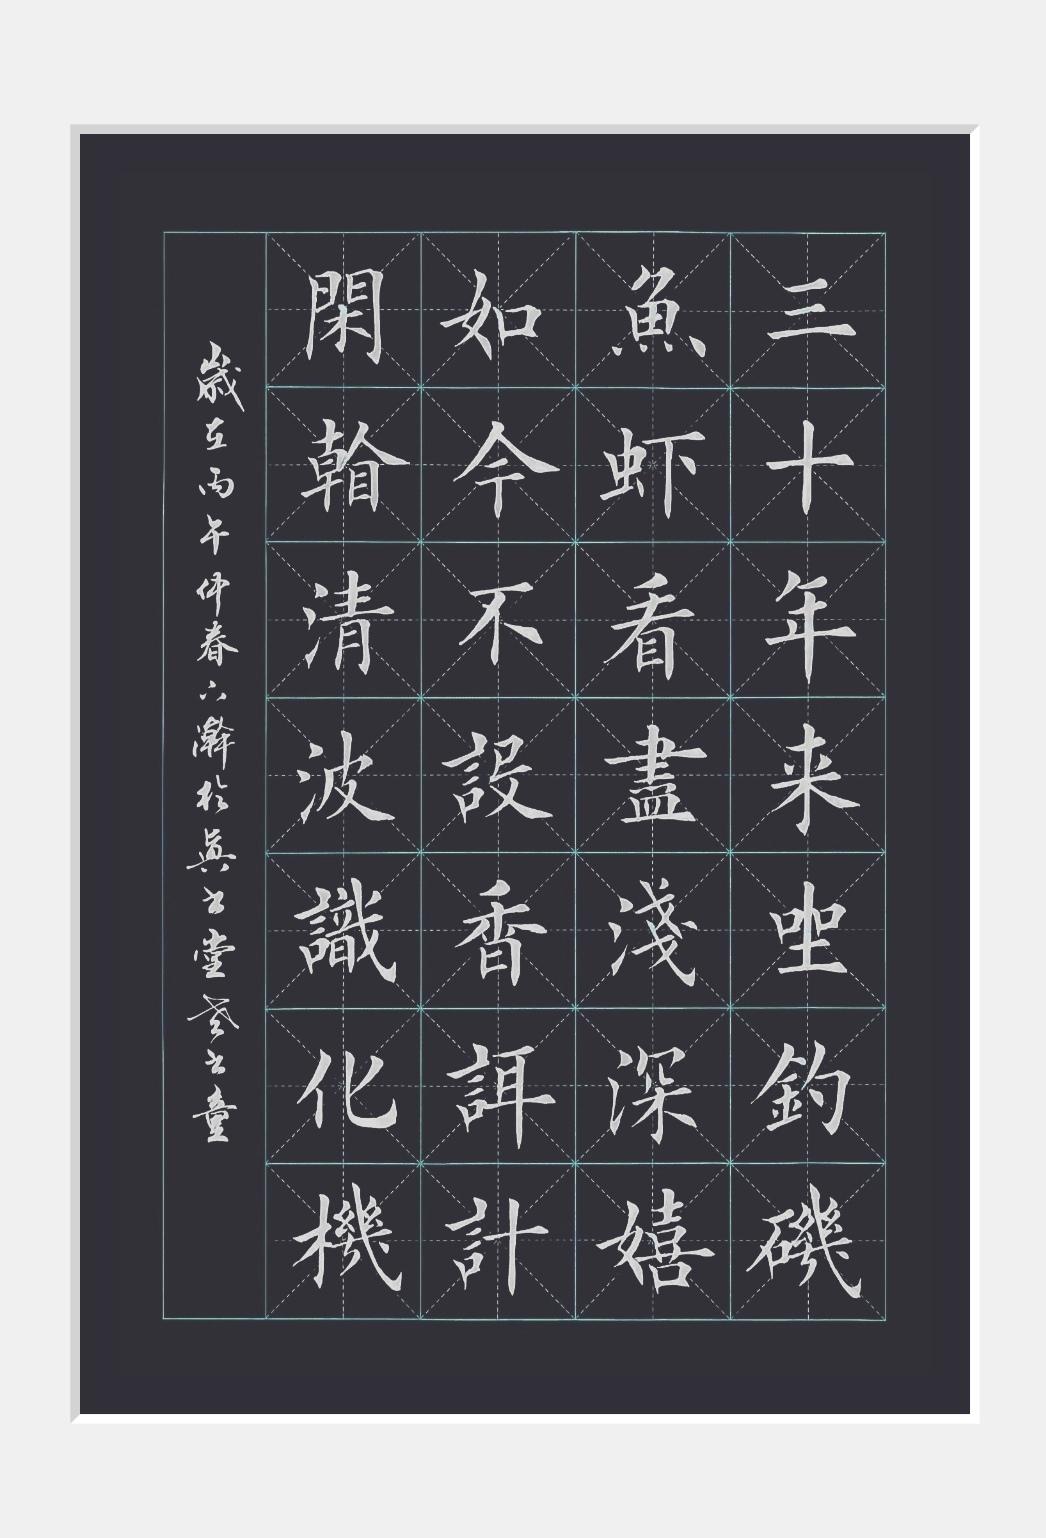 三十年来坐釣磯
魚虾看盡淺深嬉
如今不設香誀計
閑看清波識化機
歲在丙午仲春六瀚於真书堂老书童